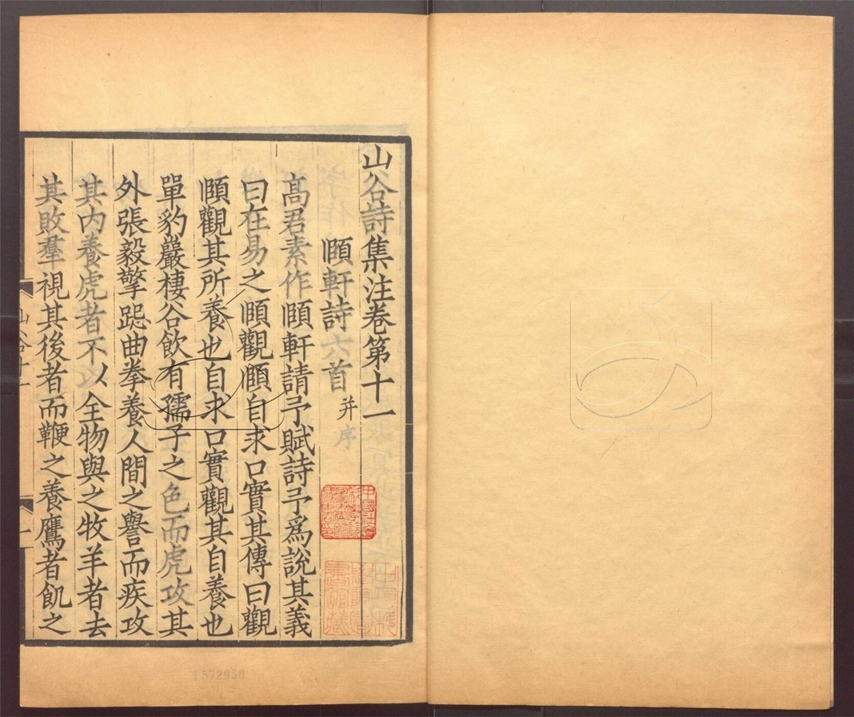 山谷詩集注卷第十一
頤軒詩六首并序
高君素作頤軒請予賦詩予爲說其義
曰在易之頤觀頤自求口實其傳曰觀
頤觀其所養也自求口實觀其自養也
單豹巖棲谷飲有孺子之色而虎攻其
外張毅擎跽曲拳養人間之譽而疾攻
其内養虎者不以全物與之牧羊者去
其敗羣視其後者而鞭之養鷹者飢之
山谷十一
一
1572950